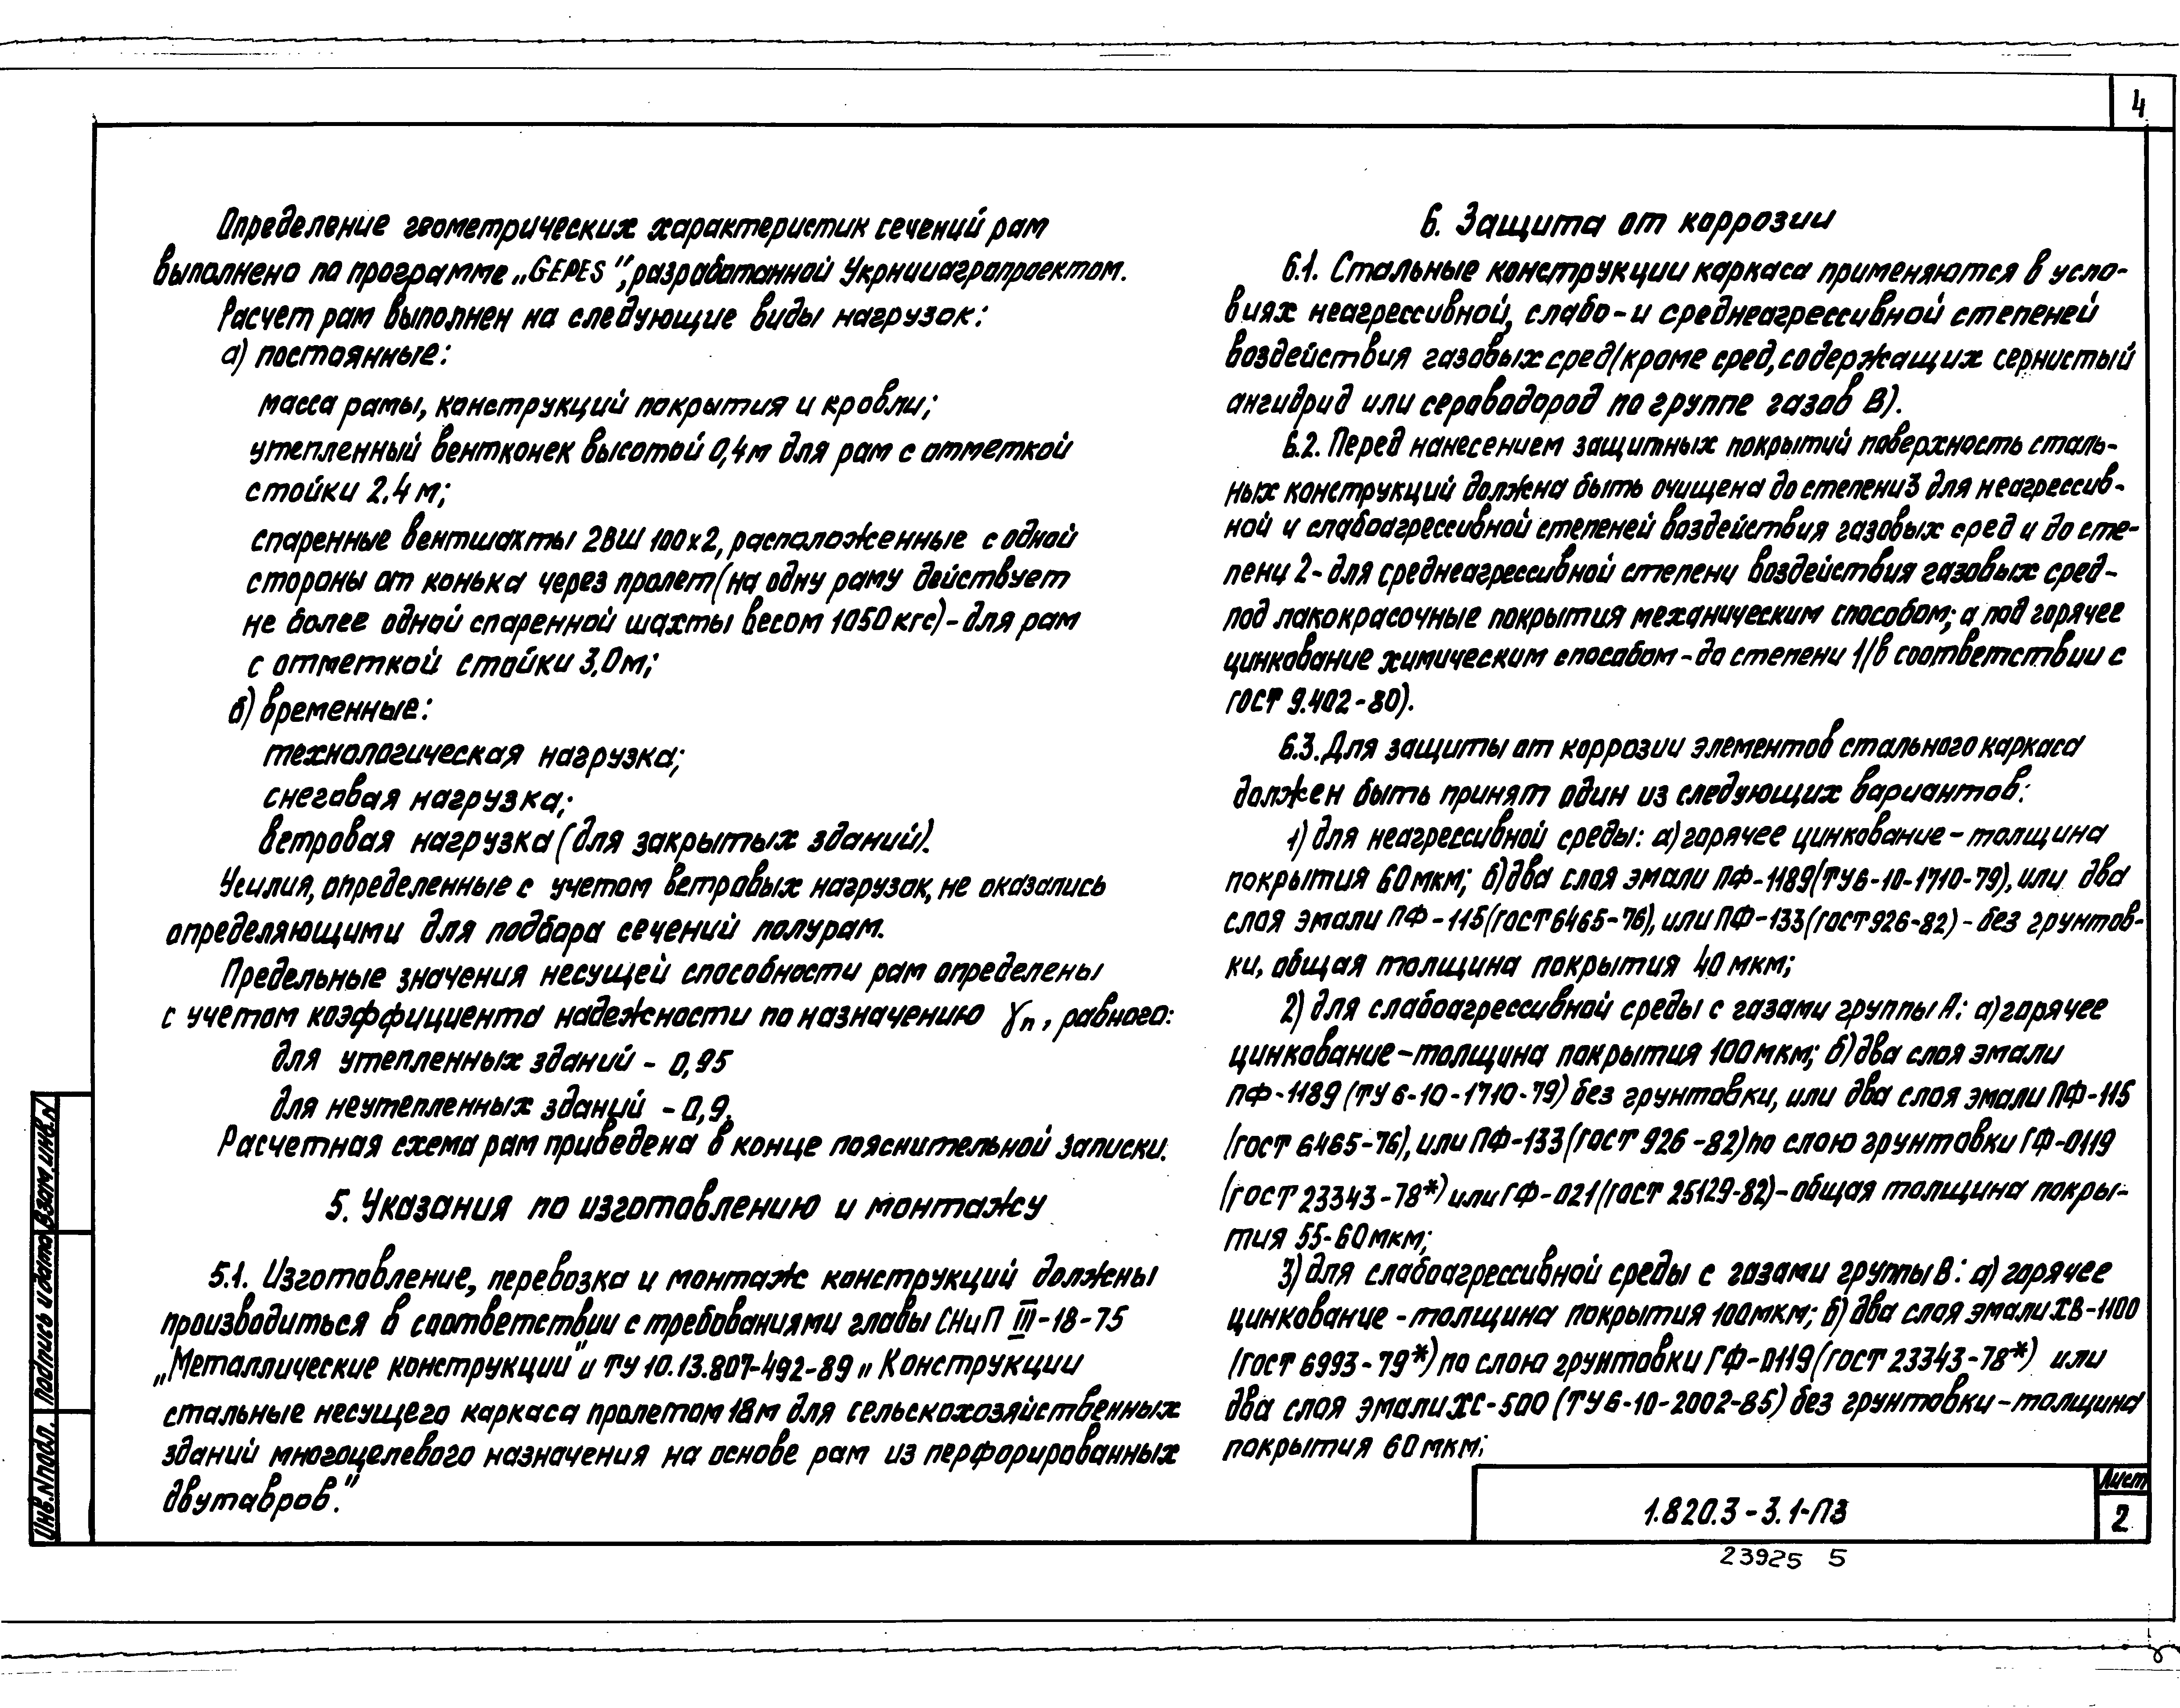 4
Определение геометрических характеристик сечений рам
выполнено по программе „GEPES", разработанной Укрнииагропроектом.
Расчет рам выполнен на следующие виды нагрузок:
а) постоянные:
масса рамы, конструкций покрытия и кровли;
утепленный вентконек высотой 0,4м для рам с отметкой
стойки 2.4 м;
спаренные вентшахты 2ВШ 100х2, расположенные с одной
стороны от конька через пролет (на одну раму действует
не более одной спаренной шахты весом 1050 кгс) - для рам
с отметкой стойки 3.0м;
б) временные:
технологическая нагрузка;
снеговая нагрузка;
ветровая нагрузка (для закрытых зданий).
Усилия, определенные с учетом ветровых нагрузок, не оказались
определяющими для подбора сечений полурам.
Предельные значения несущей способности рам определены
с учетом коэффициента надежности по назначению γn, равного:
для утепленных зданий - 0,95
для неутепленных зданий - 0,9.
Расчетная схема рам приведена в конце пояснительной записки.
5. Указания по изготовлению и монтажу
5.1. Изготовление, перевозка и монтаж конструкций должны
производиться в соответствии с требованиями главы СНиП III-18-75
„Металлические конструкции" и ТУ 10.13.807-492-89 „Конструкции
стальные несущего каркаса пролетом 18м для сельскохозяйственных
зданий многоцелевого назначения на основе рам из перфорированных
двутавров."
6. Защита от коррозии
6.1. Стальные конструкции каркаса применяются в усло-
виях неагрессивной, слабо- и среднеагрессивной степеней
воздействия газовых сред (кроме сред, содержащих сернистый
ангидрид или сероводород по группе газов В).
6.2. Перед нанесением защитных покрытий поверхность сталь-
ных конструкций должна быть очищена до степени 3 для неагрессив-
ной и слабоагрессивной степеней воздействия газовых сред и до сте-
пени 2 - для среднеагрессивной степени воздействия газовых сред -
под лакокрасочные покрытия механическим способом; а под горячее
цинкование химическим способом - до степени 1 (в соответствии с
ГОСТ 9.402-80).
6.3. Для защиты от коррозии элементов стального каркаса
должен быть принят один из следующих вариантов:
1) для неагрессивной среды: а) горячее цинкование - толщина
покрытия 60 мкм; б) два слоя эмали ПФ-1189 (ТУ6-10-1710-79), или два
слоя эмали ПФ-115 (ГОСТ 6465-76), или ПФ-133 (ГОСТ 926-82) - без грунтов-
ки, общая толщина покрытия 40 мкм;
2) для слабоагрессивной среды с газами группы А: а) горячее
цинкование - толщина покрытия 100 мкм; б) два слоя эмали
ПФ-1189 (ТУ 6-10-1710-79) без грунтовки, или два слоя эмали ПФ-115
(ГОСТ 6465-76), или ПФ-133 (ГОСТ 926-82) по слою грунтовки ГФ-0119
(ГОСТ 23343-78*) или ГФ-021 (ГОСТ 25129-82) - общая толщина покры-
тия 55-60 мкм;
3) для слабоагрессивной среды с газами группы В: а) горячее
цинкование - толщина покрытия 100мкм; б) два слоя эмали ХВ-1100
(ГОСТ 6993-79*) по слою грунтовки ГФ-0119 (ГОСТ 23343-78*) или
два слоя эмали ХС-500 (ТУ 6-10-2002-85) без грунтовки - толщина
покрытия 60 мкм;
Инв.N подл. Подпись и дата Взам.инв.N
1.820.3-3.1-ПЗ
Лист
2
23925 5